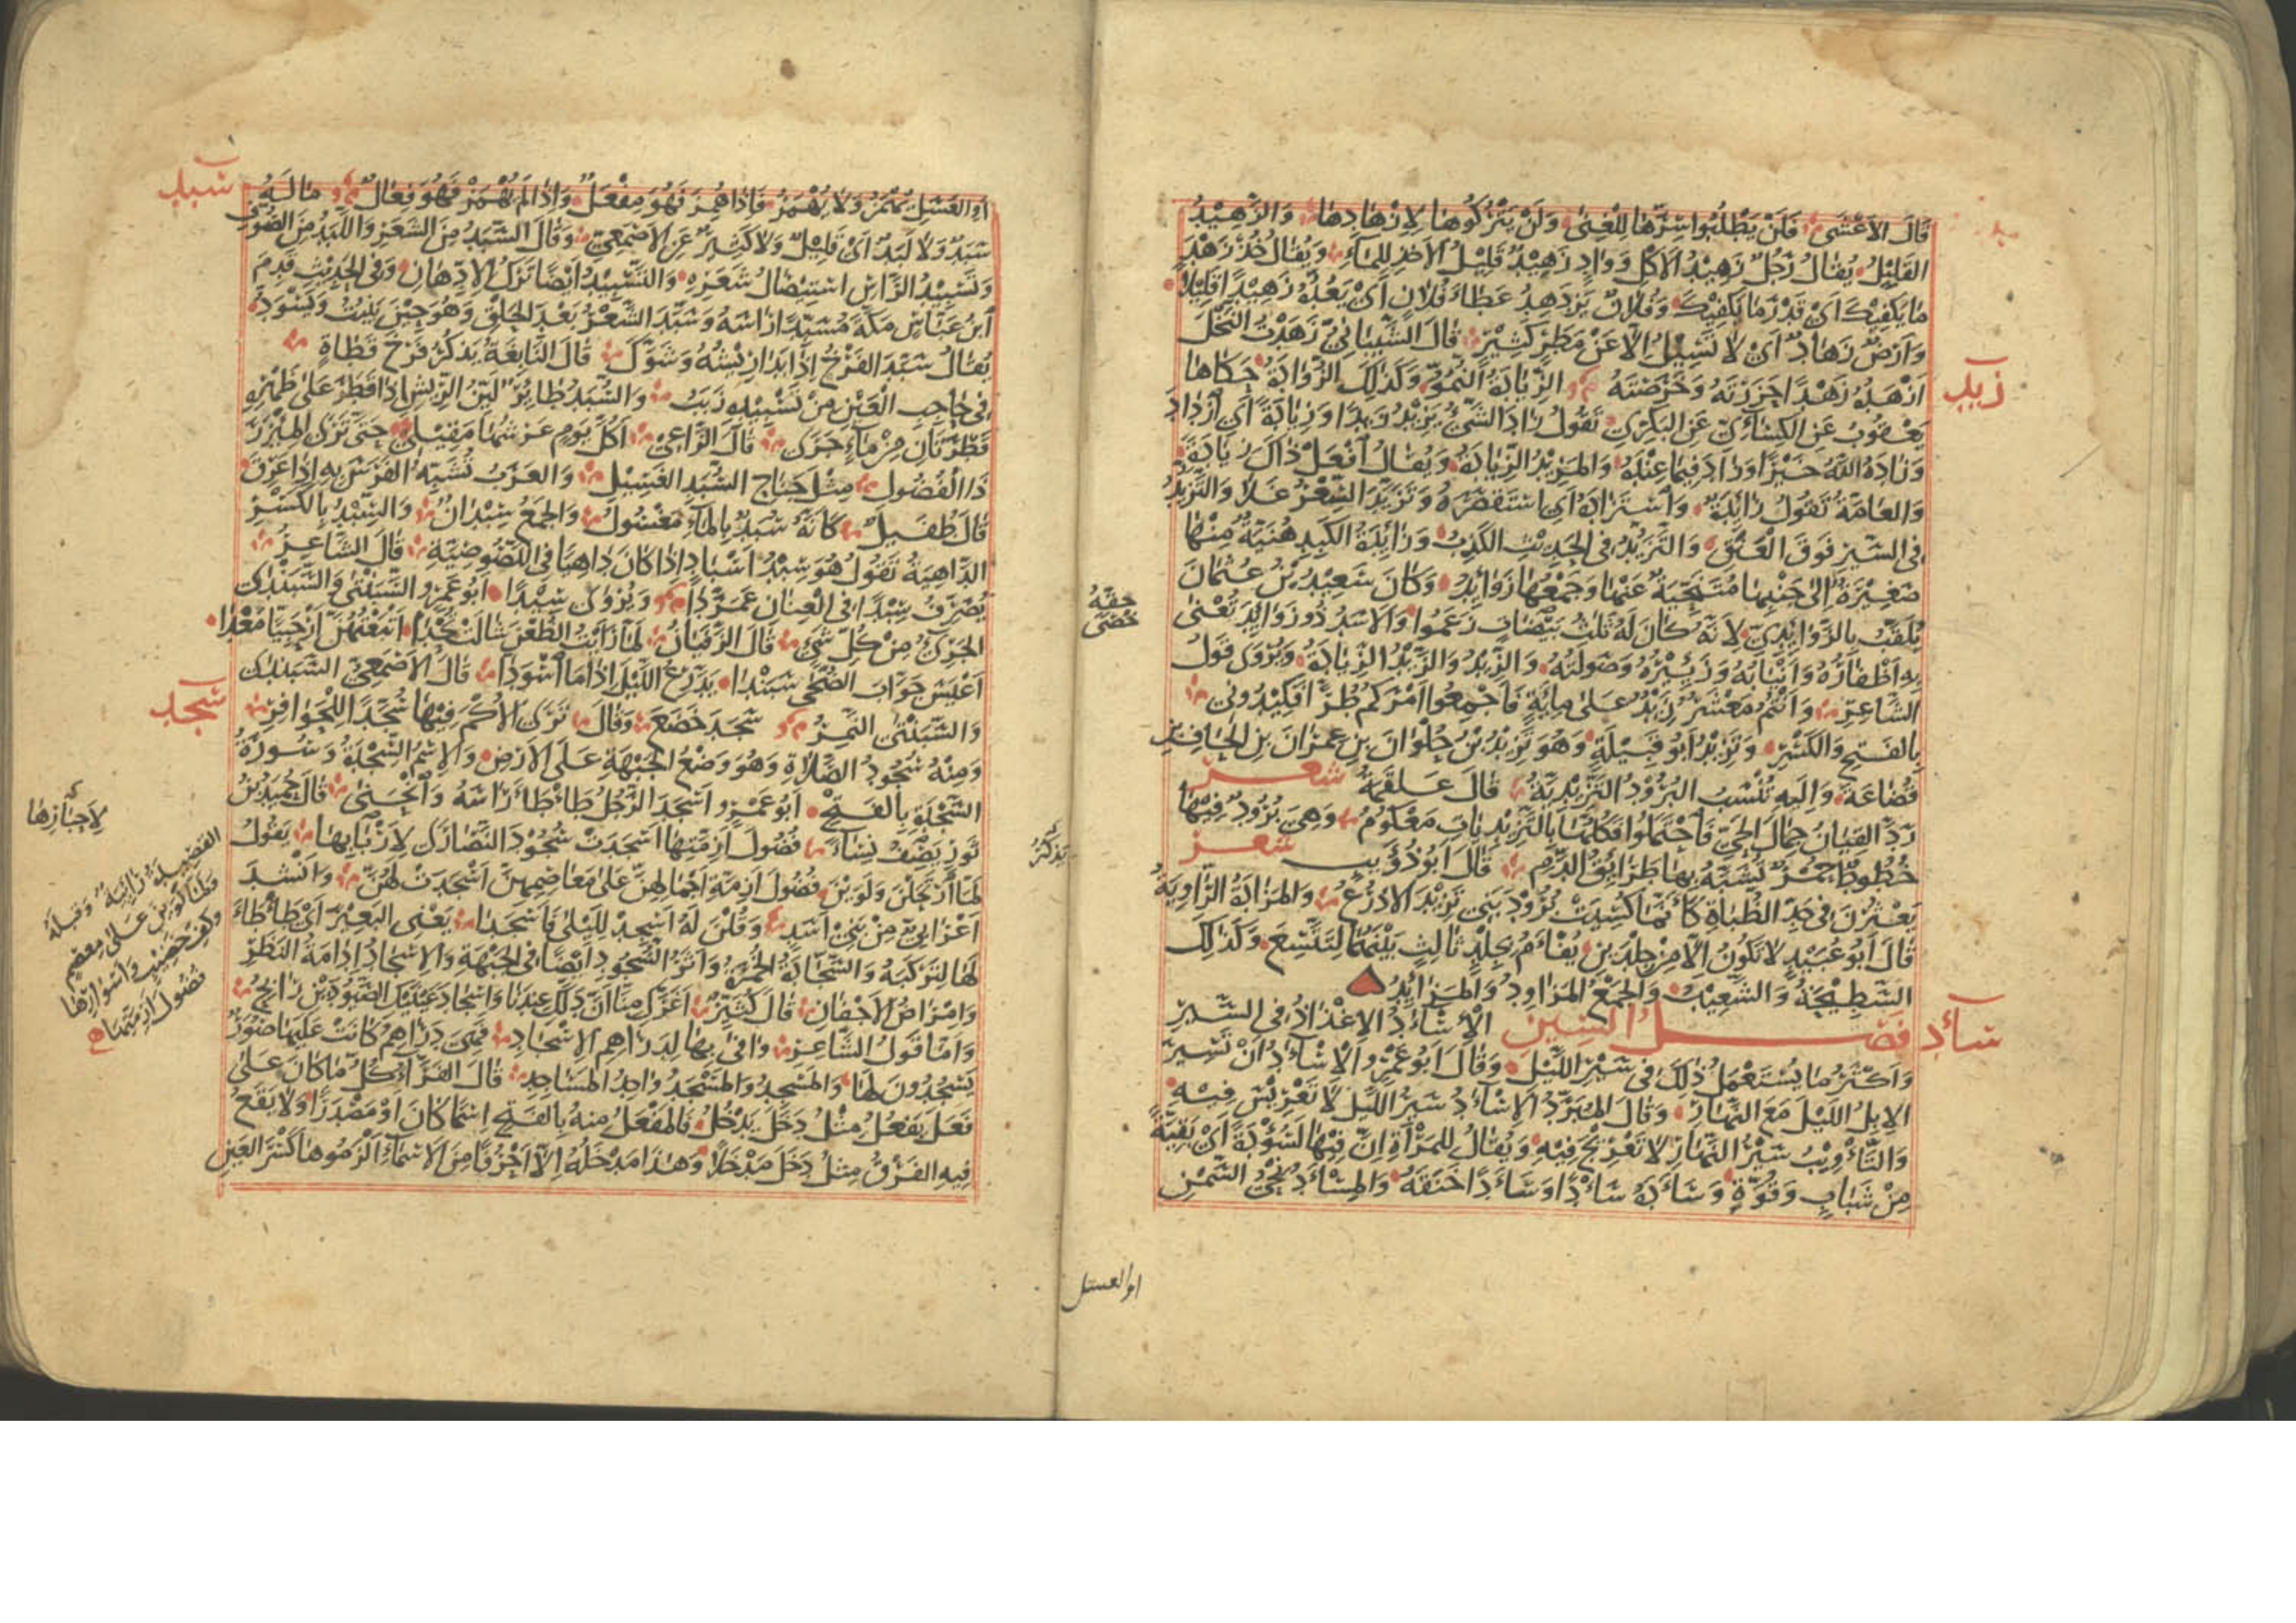 قَالَ الاَعْشَى فَلَنْ يَطْلُبُوا سِرَّهَا لِلْغِنَى وَلَنْ يَتْرُكُوهَا لِاِزْهَادِهَا وَالزَّهِيْدُ
القَلِيْلُ يُقَالُ رَجُلٌ زَهِيْدُ الاَكْلِ وَوَادٍ زَهِيْدٌ قَلِيْلُ الاَخْذِ لِلمَاءِ وَيُقَالُ خُذْ زَهْدَ
مَا يَكْفِيْكَ اَىْ قَدْرَ مَا يَكْفِيْكَ وَفُلَانٌ يَزْدَهِدُ عَطَاءَ فُلَانٍ اَىْ يَعُدُّهُ زَهِيْدًا قَلِيْلًا
وَاَرْضٌ زَهَادٌ اَىْ لَا تَسِيْلُ اِلَّا عَنْ مَطَرٍ كَثِيْرٍ قَالَ الشَّيْبَانِىُّ زَهَدْتُ النَّخْلَ
زيد
اَزْهَدُهُ زَهْدًا حَزَرْتَهُ وَخَرَصْتَهُ الزِّيَادَةُ النُّمُوُّ وَكَذٰلِكَ الزُّوَادَةُ حَكَاهَا
يَعْقُوبُ عَنِ الكِسَائِىِّ عَنِ البَكْرِىِّ تَقُولُ زَادَ الشَّىْءُ يَزِيْدُ زَيْدًا وَزِيَادَةً اَىْ اَزْدَادَ
وَزَادَهُ اللّٰهُ خَيْرًا وَزَادَ فِيْمَا عِنْدَهُ وَالمَزِيْدُ الزِّيَادَةُ وَيُقَالُ اَفْعَلُ ذَاكَ زِيَادَةً
وَالعَامَّةُ تَقُولُ زَائِدَةً وَاسْتَزَادَهُ اَىْ اسْتَقْصَرَهُ وَتَزَيَّدَ السِّعْرُ غَلَا وَالتَّزَيُّدُ
فِى السَّيْرِ فَوْقَ الْعَنَقِ وَالتَّزَيُّدُ فِى الحَدِيْثِ الكَذِبُ وَزَائِدَةُ الكَبِدِ هُنَيَّةٌ مِنْهَا
صَغِيْرَةٌ اِلَى جَنْبِهَا مُتَنَحِّيَةٌ عَنْهَا وَجَمْعُهَا زَوَائِدُ وَكَانَ سَعِيْدُ بْنُ عُثْمَانَ
يُلَقَّبُ بِالزَّوَائِدِىِّ لِاَنَّهُ كَانَ لَهُ ثَلٰثُ بَيْضَاتٍ زَعَمُوا وَالاَسَدُ ذُو زَوَائِدَ يُعْنٰى
حقه
خصى
بِهِ اَظْفَارُهُ وَاَنْيَابُهُ وَزَئِيْرُهُ وَصَوْلَتُهُ وَالزَّيْدُ وَالزِّيْدُ الزِّيَادَةُ وَيُرْوٰى قَوْلُ
الشَّاعِرِ وَاَنْتُمُ مَعْشَرٌ زَيْدٌ عَلَى مِايَةٍ فَاَجْمِعُوا اَمْرَكُمْ طُرًّا فَكِيْدُونِى
بِالفَتْحِ وَالكَسْرِ وَتَزِيْدُ اَبُو قَبِيْلَةٍ وَهُوَ تَزِيْدُ بْنُ حُلْوَانَ بنِ عِمْرَانَ بنِ الحَافِ بنِ
قُضَاعَةَ وَاِلَيْهِ تُنْسَبُ البُرُوْدُ التَّزِيْدِيَّةُ قَالَ عَلْقَمَةُ شعر
رَدَّ القِيَانُ جِمَالَ الحَىِّ فَاحْتَمَلُوا فَكُلُّهَا بِالتَّزِيْدِيَّاتِ مَعْكُومٌ وَهِىَ بُرُودٌ فِيْهَا
خُطُوطٌ حُمْرٌ يُشَبَّهُ بِهَا طَرَائِقُ الدَّمِ قَالَ اَبُو ذُؤَيْبٍ شعر
يَعْثُرْنَ فِى حَدِّ الظُّبَاةِ كَاَنَّمَا كُسِيَتْ بُرُوْدَ بَنِى تَزِيْدَ الاَذْرُعُ وَالمَزَادَةُ الرَّاوِيَةُ
قَالَ اَبُو عُبَيْدٍ لَا تَكُونُ اِلَّا مِنْ جِلْدَيْنِ يُفْاَمُ بِجِلْدٍ ثَالِثٍ بَيْنَهُمَا لِتَتَّسِعَ وَكَذٰلِكَ
السَّطِيْحَةُ وَالشَّعِيْبُ وَالجَمْعُ المَزَاوِدُ وَالمَزَايِدُ
سأد فصل السين الاِسْآدُ الاِغْذَاذُ فِى السَّيْرِ
وَاَكْثَرُ مَا يُسْتَعْمَلُ ذٰلِكَ فِى سَيْرِ اللَّيْلِ وَقَالَ اَبُو عَمْرٍو الاِسْآدُ اَنْ تَسِيْرَ
الاِبِلُ اللَّيْلَ مَعَ النَّهَارِ وَقَالَ المُبَرَّدُ الاِسْآدُ سَيْرُ اللَّيْلِ لَا تَعْرِيْسَ فِيْهِ
وَالتَّاْوِيْبُ سَيْرُ النَّهَارِ لَا تَعْرِيْجَ فِيْهِ وَيُقَالُ لِلمَرْاَةِ اِنَّ فِيْهَا لَسُؤْدَةً اَىْ بَقِيَّةً
مِنْ شَبَابٍ وَقُوَّةٍ وَسَاَدَهُ سَاْدًا وَسَاَدًا خَنَقَهُ وَالمِسْاَدُ نِحْىُ السَّمْنِ
او العسل
اَوِ العَسَلِ يُهْمَزُ وَلَا يُهْمَزُ فَاِذَا هُمِزَ فَهُوَ مِفْعَلٌ وَاِذَا لَمْ يُهْمَزْ فَهُوَ فِعَالٌ مَا لَهُ
سبد
سَبَدٌ وَلَا لَبَدٌ اَىْ قَلِيْلٌ وَلَا كَثِيْرٌ عَنِ الاَصْمَعِىِّ وَقَالَ السَّبَدُ مِنَ الشَّعَرِ وَاللَّبَدُ مِنَ الصُّوْفِ
وَتَسْبِيْدُ الرَّاْسِ اسْتِيْصَالُ شَعَرِهِ وَالتَّسْبِيْدُ اَيْضًا تَرْكُ الاِدِّهَانِ وَفِى الحَدِيْثِ قَدِمَ
ابْنُ عَبَّاسٍ مَكَّةَ مُسَبِّدًا رَاْسَهُ وَسَبَّدَ الشَّعْرُ بَعْدَ الحَلْقِ وَهُوَ حِيْنَ يَنْبُتُ وَيَسْوَدُّ
يُقَالُ سَبَّدَ الفَرْخُ اِذَا بَدَا رِيْشُهُ وَشَوَّكَ قَالَ النَّابِغَةُ يَذْكُرُ فَرْخَ قَطَاةٍ
فِى حَاجِبِ الْعَيْنِ مِنْ تَسْبِيْدِهِ زَبَبُ وَالسُّبَدُ طَائِرٌ لَيِّنُ الرِّيْشِ اِذَا قَطَرَ عَلَى ظَهْرِهِ
قَطْرَتَانِ مِنْ مَاءٍ جَرٰى قَالَ الرَّاجِزُ اَكُلَّ يَوْمٍ عَرْشُهَا مَقِيْلِى حَتّٰى تَرَى المِئْزَرَ
ذَا الْفُضُولِ مِثْلَ جَنَاحِ السُّبَدِ الغَسِيْلِ وَالعَرَبُ تُشَبِّهُ الفَرَسَ بِهِ اِذَا عَرِقَ
قَالَ طُفَيْلٌ كَاَنَّهُ سُبَدٌ بِالمَاءِ مَغْسُولُ وَالجَمْعُ سِبْدَانٌ وَالسِّبْدُ بِالكَسْرِ
الدَّاهِيَةُ تَقُولُ هُوَ سِبْدُ اَسْبَادٍ اِذَا كَانَ دَاهِيًا فِى اللُّصُوصِيَّةِ قَالَ الشَّاعِرُ
يُصَرِّفُ سِبْدًا فِى العِنَانِ عَمَرَّدًا وَيُرْوٰى سِيْدًا اَبُو عَمْرٍو السَّبَنْتٰى وَالسَّبَنْدٰى
الجَرِىُّ مِنْ كُلِّ شَىْءٍ قَالَ الزَّفَيَانُ لَمَّا رَاَيْتُ الظُّعْنَ شَالَتْ تُحْدٰى اَتْبَعْتُهُنَّ اَرْحَبِيًّا مَعْدًا
اَعْيَسَ جَوَّابَ الضُّحٰى سَبَنْدٰا يَدَّرِعُ اللَّيْلَ اِذَا مَا اسْوَدَّا قَالَ الاَصْمَعِىُّ السَّبَنْدٰى
سجد
وَالسَّبَنْتٰى النَّمِرُ سَجَدَ خَضَعَ وَقَالَ تَرَى الاُكْمَ فِيْهَا سُجَّدًا لِلْحَوَافِرِ
وَمِنْهُ سُجُودُ الصَّلَاةِ وَهُوَ وَضْعُ الجَبْهَةِ عَلَى الاَرْضِ وَالاِسْمُ السِّجْدَةُ وَسُورَةُ
السَّجْدَةِ بِالفَتْحِ اَبُو عَمْرٍو اَسْجَدَ الرَّجُلُ طَاْطَاَ رَاْسَهُ وَانْحَنٰى قَالَ حُمَيْدُ بْنُ
لِاَحْبَارِهَا
ثَوْرٍ يَصِفُ نِسَاءً فُضُولَ اَزِمَّتِهَا اَسْجَدَتْ سُجُوْدَ النَّصَارٰى لِاَرْبَابِهَا يَقُولُ
يذكر
لَمَّا ارْتَحَلْنَ وَلَوَيْنَ فُضُولَ اَزِمَّةِ اَجْمَالِهِنَّ عَلَى مَعَاصِمِهِنَّ اَسْجَدَتْ لَهُنَّ وَاَنْشَدَ
وقبله
فلما لوين على معصم
وكف خضيب واسوارها
فضول ازمتها
اَعْرَابِىٌّ مِنْ بَنِى اَسَدٍ وَقُلْنَ لَهُ اَسْجِدْ لِلَيْلٰى فَاَسْجَدَا يَعْنِى البَعِيْرَ اَىْ طَاْطَاَ
لَهَا لِتَرْكَبَهُ وَالسَّجَّادَةُ الخُمْرَةُ وَاَثَرُ السُّجُودِ اَيْضًا فِى الجَبْهَةِ وَالاِسْجَادُ اِدَامَةُ النَّظَرِ
وَاِمْرَاضُ الاَجْفَانِ قَالَ كُثَيِّرٌ اَغَرَّكِ مِنَّا اَنَّ دَلَّكِ عِنْدَنَا وَاِسْجَادَ عَيْنَيْكِ الصَّيُوْدَيْنِ رَابِحُ
وَاَمَّا قَوْلُ الشَّاعِرِ وَافَى بِهَا لِدَرَاهِمِ الاِسْجَادِ فَهِىَ دَرَاهِمُ كَانَتْ عَلَيْهَا صُوَرٌ
يَسْجُدُونَ لَهَا وَالمَسْجِدُ وَالمَسْجَدُ وَاحِدُ المَسَاجِدِ قَالَ الفَرَّاءُ كُلُّ مَا كَانَ عَلَى
فَعَلَ يَفْعُلُ مِثْلُ دَخَلَ يَدْخُلُ فَالمَفْعَلُ مِنْهُ بِالفَتْحِ اسْمًا كَانَ اَوْ مَصْدَرًا وَلَا يَقَعُ
فِيْهِ الفَرْقُ مِثْلُ دَخَلَ مَدْخَلًا وَهٰذَا مَدْخَلُهُ اِلَّا اَحْرُفًا مِنَ الاَسْمَاءِ اَلْزَمُوهَا كَسْرَ العَيْنِ